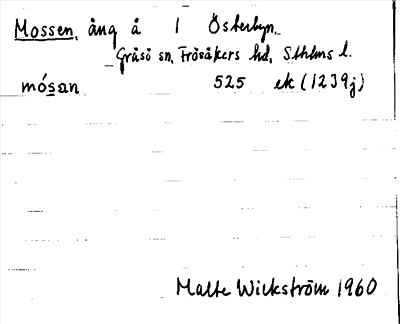 Mossen, äng å 1 Österbyn.
Gräsö sn, Frösåkers hd, Sthlms l.
mósan 525 ek (1239j)
Malte Wickström 1960